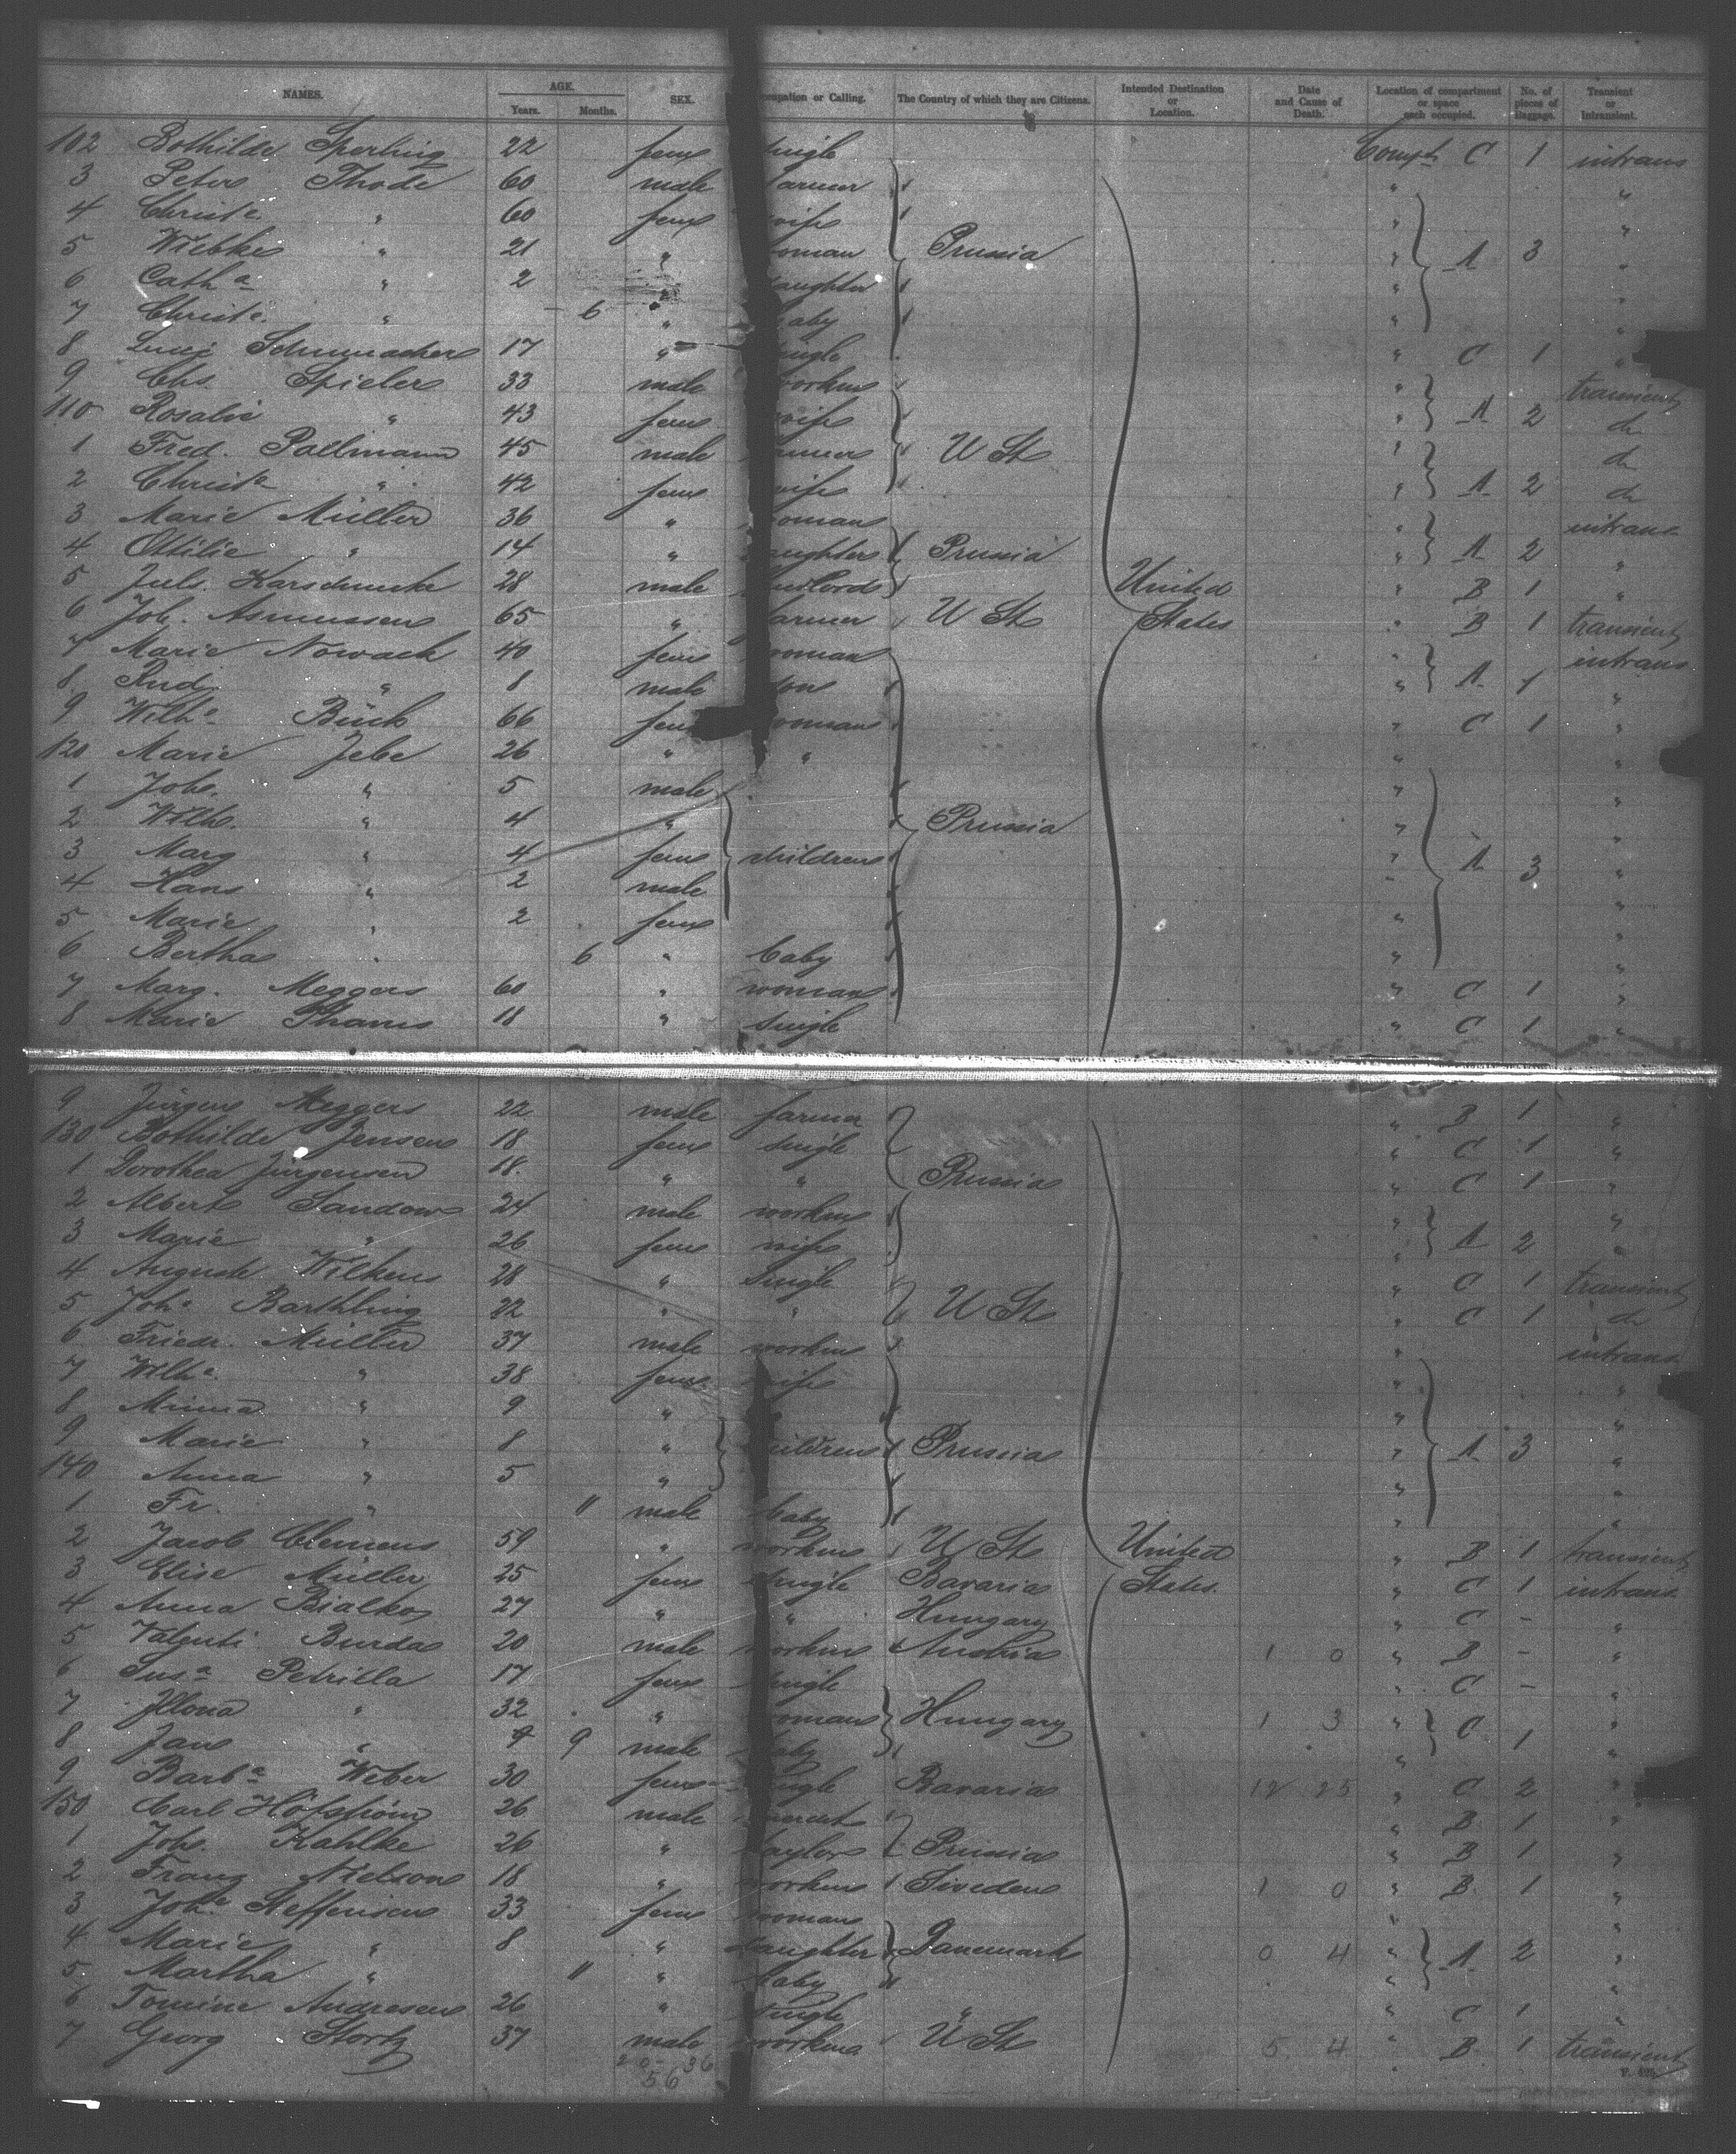 NAMES. AGE. Years. Months. SEX. upation or Calling. The Country of which they are Citizens. Intended Destination or Location. Date and Cause of Death. Location of compartment or space each occupied. No. of pieces of Baggage. Transient or Intransient.
102 Bothilde Sperling 22 fem ingle Compt C 1 intrans
3 Peter Thode 60 male farmer "
4 Christe. " 60 fem wife " "
5 Wiebke " 21 " woman Prussia " A 3 "
6 Catha " 2 " aughter " "
7 Christe. " 6 " aby " "
8 Lucie Schumacher 17 " ingle " C 1 "
9 Chs. Spieler 33 male workm " transient
110 Rosalie " 43 fem wife " A 2 do
1 Fred. Pollmann 45 male U St " do
2 Christe " 42 fem wife " A 2 do
3 Marie Müller 36 " woman " intrans
4 Ottilie " 14 " aughter Prussia " A 2 "
5 Jul. 28 male United " B 1 "
6 Joh. Asmussen 65 " farmer U St States " B 1 transient
7 Marie Nowack 40 fem woman " intrans
8 Rud. " 8 male son " A 1 "
9 Wilhe Bück 66 fem woman " C 1 "
120 Marie Jebe 26 " " " "
1 Joh. " 5 male " "
2 Wilh. " 4 " Prussia " "
3 Marg " 4 fem children " A 3 "
4 Hans " 2 male " "
5 Marie " 2 fem " "
6 Bertha " 6 " baby " "
7 Marg. Meggers 60 " woman " C 1 "
8 Marie Thams 18 " single " C 1 "
9 Jürgen Meggers 22 male farma " B 1 "
130 Bothilde Jensen 18 fem single " C 1 "
1 Dorothea Jürgensen 18. " " Prussia " C 1 "
2 Albert Sandow 24 male workm " "
3 Marie " 26 fem wife " A 2 "
4 Auguste Wilkens 28 " Single " C 1 transient
5 Johe Barthling 22 " " U St " C 1 do
6 Friedr. Müller 37 male workm " intrans
7 Wilhe. " 38 fem wife " "
8 Minna " 9 " " "
9 Marie " 8 " children Prussia " A 3 "
140 Anna " 5 " " "
1 Fr. " 11 male baby " "
2 Jacob Clemens 59 " workm U St United " B 1 transient
3 Elise Müller 25 fem single Bavaria States. " C 1 intrans
4 Anna Bialko 27 " " Hungary " C - "
5 Burda 20 male workm Austria 1 0 " B - "
6 Susa Petrilla 17 fem single " C - "
7 Illona " 32 " woman Hungary 1 3 " C 1 "
8 Jan " 9 male baby " "
9 Barba Weber 30 fem single Bavaria 12 25 " C 2 "
150 Carl 26 male " B 1 "
1 Joh. Kahlke 26 " taylor Prussia " B 1 "
2 Franz Nielson 18 " workm Sweden 1 0 " B 1 "
3 Johe Steffensen 33 fem woman " "
4 Marie " 8 " daughter Danemark 0 4 " A 2 "
5 Martha " 11 " baby " "
6 Tomine Andresen 26 " single " " C 1 "
7 Georg Stortz 37 male workma U St 5 4 " B 1 transient
20 - 36
56